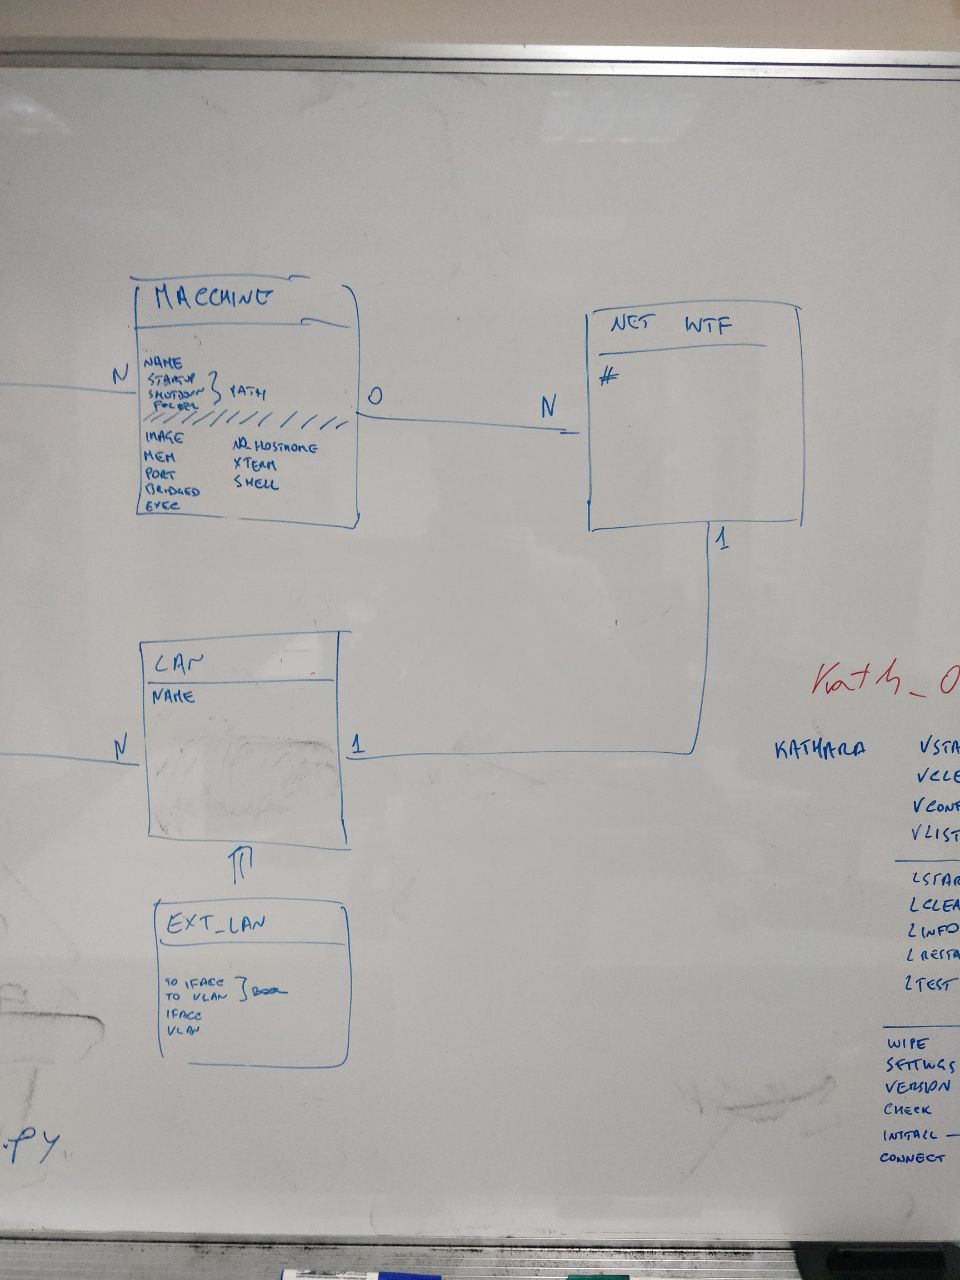 MACCHINE
N
NAME
STARTUP
SHUTDOWN
FOLDER
PATH
IMAGE
MEM
PORT
BRIDGED
EXEC
NO_HOSTHOME
XTERM
SHELL
0
N
NET WTF
#
1
LAN
NAME
N
1
EXT_LAN
TO IFACE
TO VLAN
BOOL
IFACE
VLAN
.PY
Kath_0
KATHARA
VSTA
VCLE
VCONF
VLIST
LSTAR
LCLEA
LINFO
LRESTA
LTEST
WIPE
SETTINGS
VERSION
CHECK
INSTALL —
CONNECT